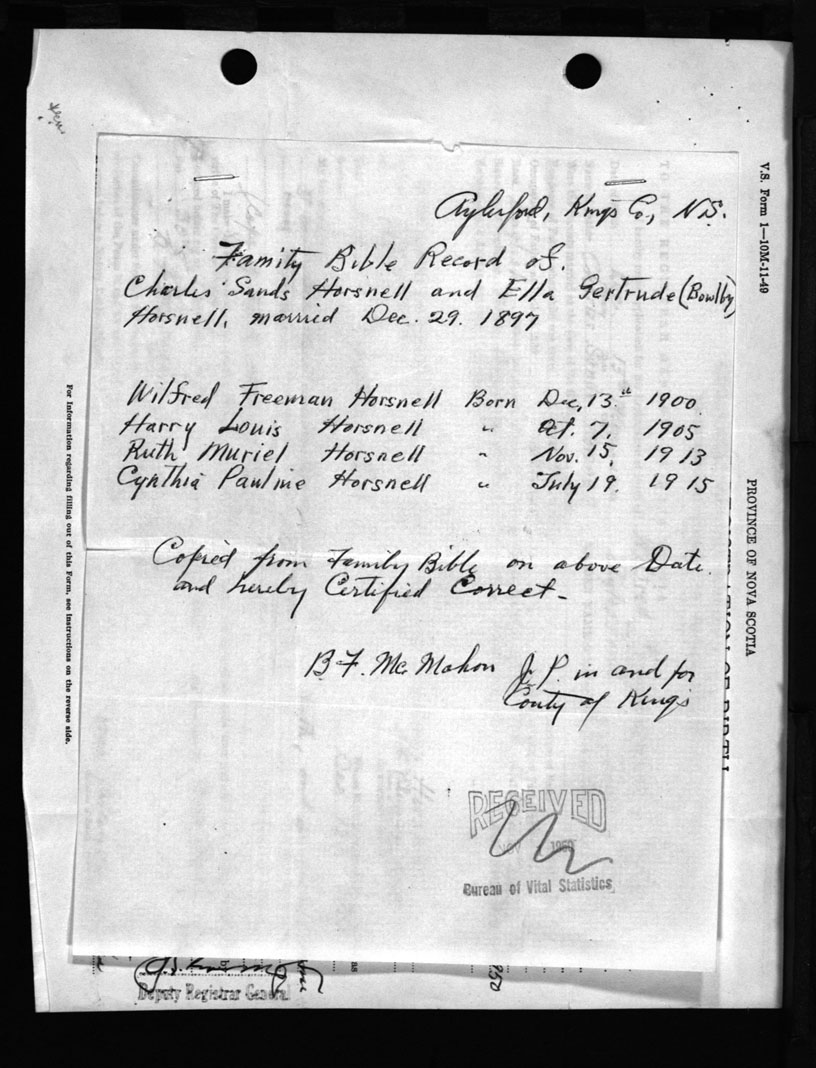 Aylesford, Kings Co., N.S.
Family Bible Record of.
Charles Sands Horsnell and Ella Gertrude (Bowlby)
Horsnell, married Dec. 29. 1897
Wilfred Freeman Horsnell Born Dec, 13th 1900.
Harry Louis Horsnell " Oct. 7, 1905
Ruth Muriel Horsnell " Nov. 15, 1913
Cynthia Pauline Horsnell " July 19. 1915
Copied from Family Bible on above Date.
and hereby Certified Correct -
B.F. McMahon J.P. in and for
County of Kings
RECEIVED
NOV 1950
Bureau of Vital Statistics
Deputy Registrar General
as
950
V.S. Form 1—10M-11-49
PROVINCE OF NOVA SCOTIA
For Information regarding filling out of this Form, see Instructions on the reverse side.